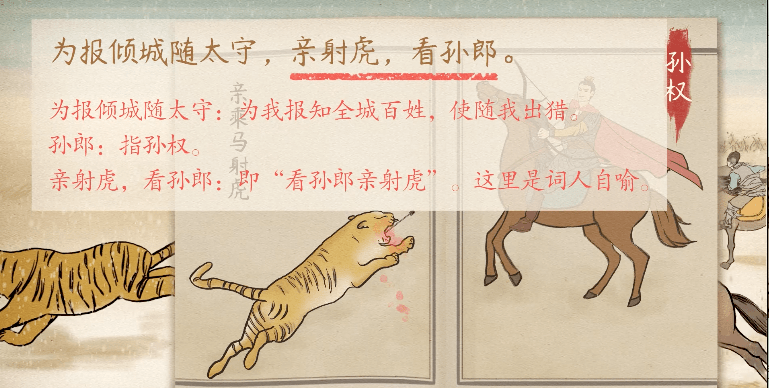 为报倾城随太守，亲射虎，看孙郎。
孙权
亲乘马射虎
为报倾城随太守：为我报知全城百姓，使随我出猎。
孙郎：指孙权。
亲射虎，看孙郎：即“看孙郎亲射虎”。这里是词人自喻。